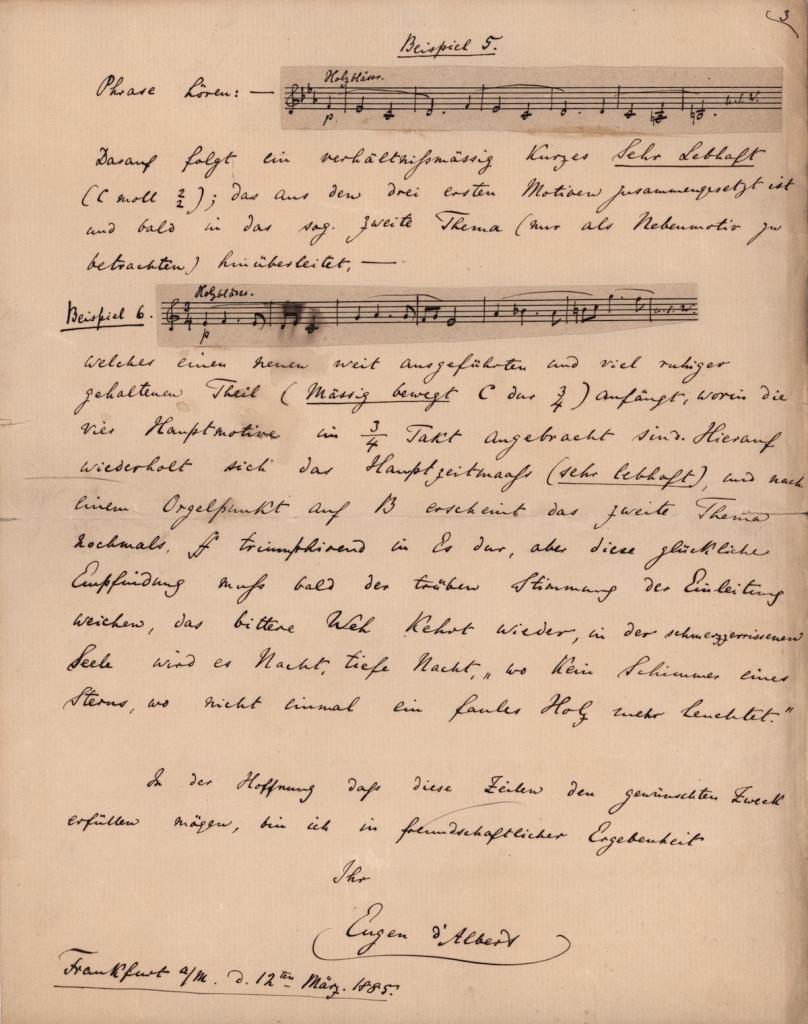 3
Beispiel 5.
Phrase hören: — Holzbläser. p. u.s.w.
Darauf folgt ein verhältnißmässig kurzes Sehr Lebhaft
(C moll 2/2); das aus den drei ersten Motiven zusammengesetzt ist
und bald in das sog. zweite Thema (nur als Nebenmotiv zu
betrachten) hinüberleitet, —
Beispiel 6. Holzbläser. 3/4 p u.s.w.
welches einen neuen weit ausgeführten und viel ruhiger
gehaltenen Theil (Mässig bewegt C dur 3/4) anfängt, worin die
vier Hauptmotive im 3/4 Takt angebracht sind. Hierauf
wiederholt sich das Hauptzeitmaaß (sehr lebhaft), und nach
einem Orgelpunkt auf B erscheint das zweite Thema
nochmals, ff triumphirend in Es dur, aber diese glückliche
Empfindung muß bald der trüben Stimmung der Einleitung
weichen, das bittere Weh kehrt wieder, in der schmerzzerrissenen
Seele wird es Nacht, tiefe Nacht, „wo kein Schimmer eines
Sterns, wo nicht einmal ein faules Holz mehr leuchtet."
In der Hoffnung daß diese Zeilen den gewünschten Zweck
erfüllen mögen, bin ich in freundschaftlicher Ergebenheit
Ihr
Eugen d'Albert
Frankfurt a/M. d. 12ten März. 1885.